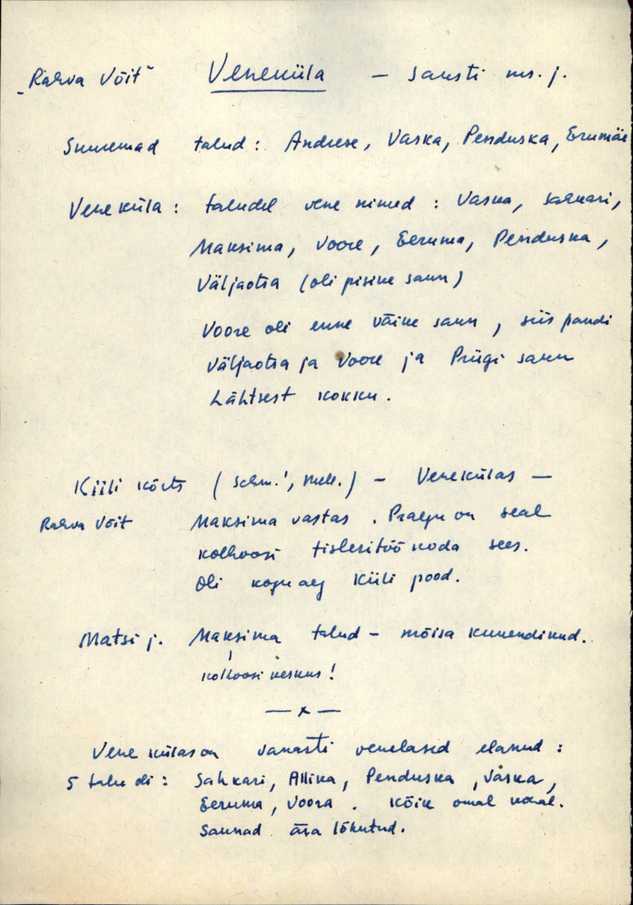 „Rahva Võit" Veneküla – Sausti ms. j.
Suuremad talud: Andrese, Vaska, Penduska, Erumäe
Veneküla: taludel vene nimed: Vaska, Sahkari,
Maksima, Voore, Eeruma, Penduska,
Väljaotsa (oli pisine saun)
Voore oli enne väike saun, siis pandi
Väljaotsa ja Voore ja Prügi saun
Lähtsest kokku.
Kiili kõrts (Schm.!, Mell.) – Venekülas –
Rahva Võit Maksima vastas. Praegu on seal
kolhoosi tisleritöökoda sees.
Oli kogu aeg Kiili pood.
Matsi j. Maksima talud – mõisa kunendikud.
kolhoosi keskus!
— x —
Vene külas on vanasti venelased elanud:
5 talu di: Sahkari, Allika, Penduska, Vaska,
Eeruma, Voora. Kõik omal kohal.
Saunad ära lõhutud.